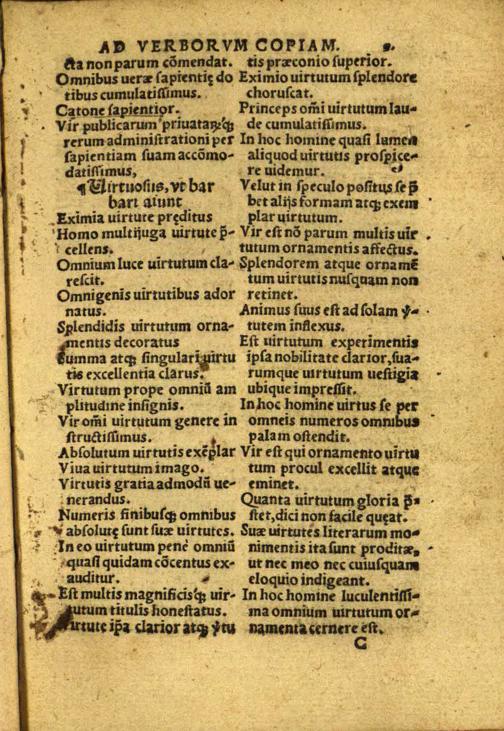 AD VERBORVM COPIAM. 9.
cta non parum cōmendat.
Omnibus ueræ sapientię do
tibus cumulatissimus.
Catone sapientior.
Vir publicarum priuatarūq́;
rerum administrationi per
sapientiam suam accōmo-
datissimus,
¶ Uirtuosius, vt bar
bari aiunt
Eximia uirtute pręditus
Homo multijuga uirtute p̄-
cellens.
Omnium luce uirtutum cla-
rescit.
Omnigenis uirtutibus ador
natus.
Splendidis uirtutum orna-
mentis decoratus
Summa atq; singulari uirtu
tis excellentia clarus.
Virtutum prope omniū am
plitudine insignis.
Vir om̄i uirtutum genere in
structissimus.
Absolutum uirtutis exēplar
Viua uirtutum imago.
Virtutis gratia admodū ue-
nerandus.
Numeris finibusq; omnibus
absolutę sunt suæ uirtutes.
In eo uirtutum penè omniū
quasi quidam cōcentus ex-
auditur.
Est multis magnificisq; uir-
tutum titulis honestatus.
Virtute ip̄a clarior atq; v̓tu
tis præconio superior.
Eximio uirtutum splendore
choruscat.
Princeps om̄i uirtutum lau-
de cumulatissimus.
In hoc homine quasi lumen
aliquod uirtutis prospice-
re uidemur.
Velut in speculo positus se p̄
bet alijs formam atq; exem
plar uirtutum.
Vir est nō parum multis uir
tutum ornamentis affectus.
Splendorem atque ornamē
tum uirtutis nusquam non
retinet.
Animus suus est ad solam v̓-
tutem inflexus.
Est uirtutum experimentis
ipsa nobilitate clarior, sua-
rumque uirtutum uestigia
ubique impressit.
In hoc homine uirtus se per
omneis numeros omnibus
palam ostendit.
Vir est qui ornamento uirtu
tum procul excellit atque
eminet.
Quanta uirtutum gloria p̄-
stet, dici non facile quęat.
Suæ uirtutes literarum mo-
nimentis ita sunt proditæ,
ut nec meo nec cuiusquam
eloquio indigeant.
In hoc homine luculentissi-
ma omnium uirtutum or-
namenta cernere est.
C